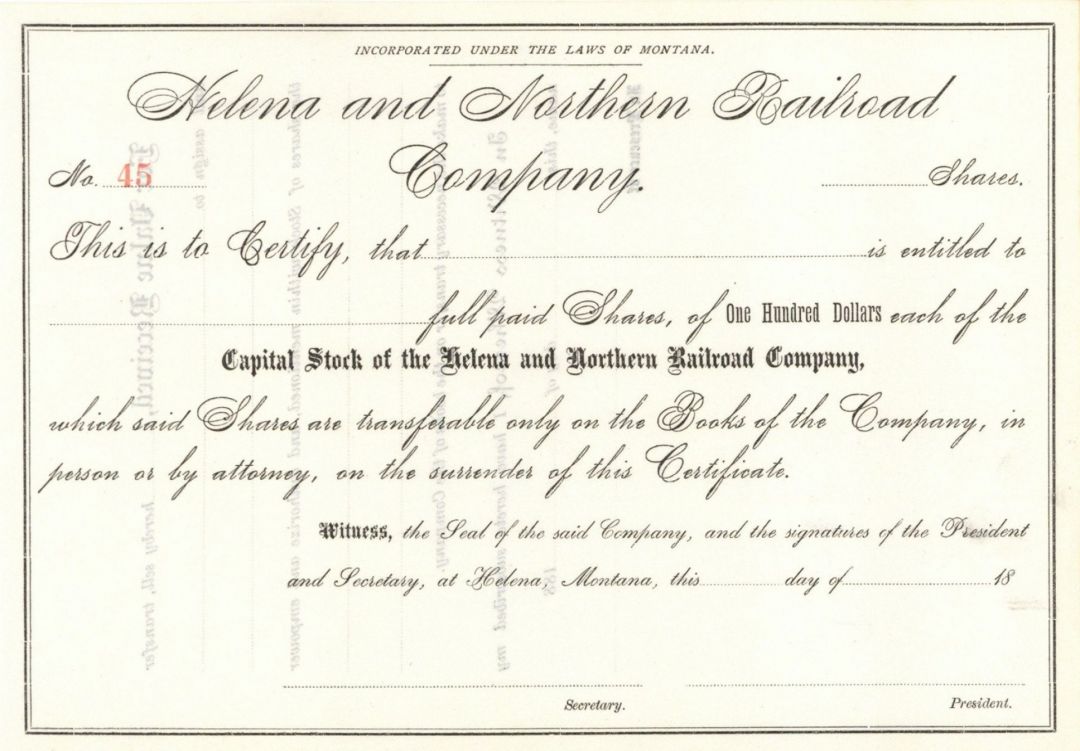 INCORPORATED UNDER THE LAWS OF MONTANA.
Helena and Northern Railroad
Company.
No. 45
Shares.
This is to Certify, that is entitled to
full paid Shares, of One Hundred Dollars each of the
Capital Stock of the Helena and Northern Railroad Company,
which said Shares are transferable only on the Books of the Company, in
person or by attorney, on the surrender of this Certificate.
Witness, the Seal of the said Company, and the signatures of the President
and Secretary, at Helena, Montana, this day of 18
Secretary. President.